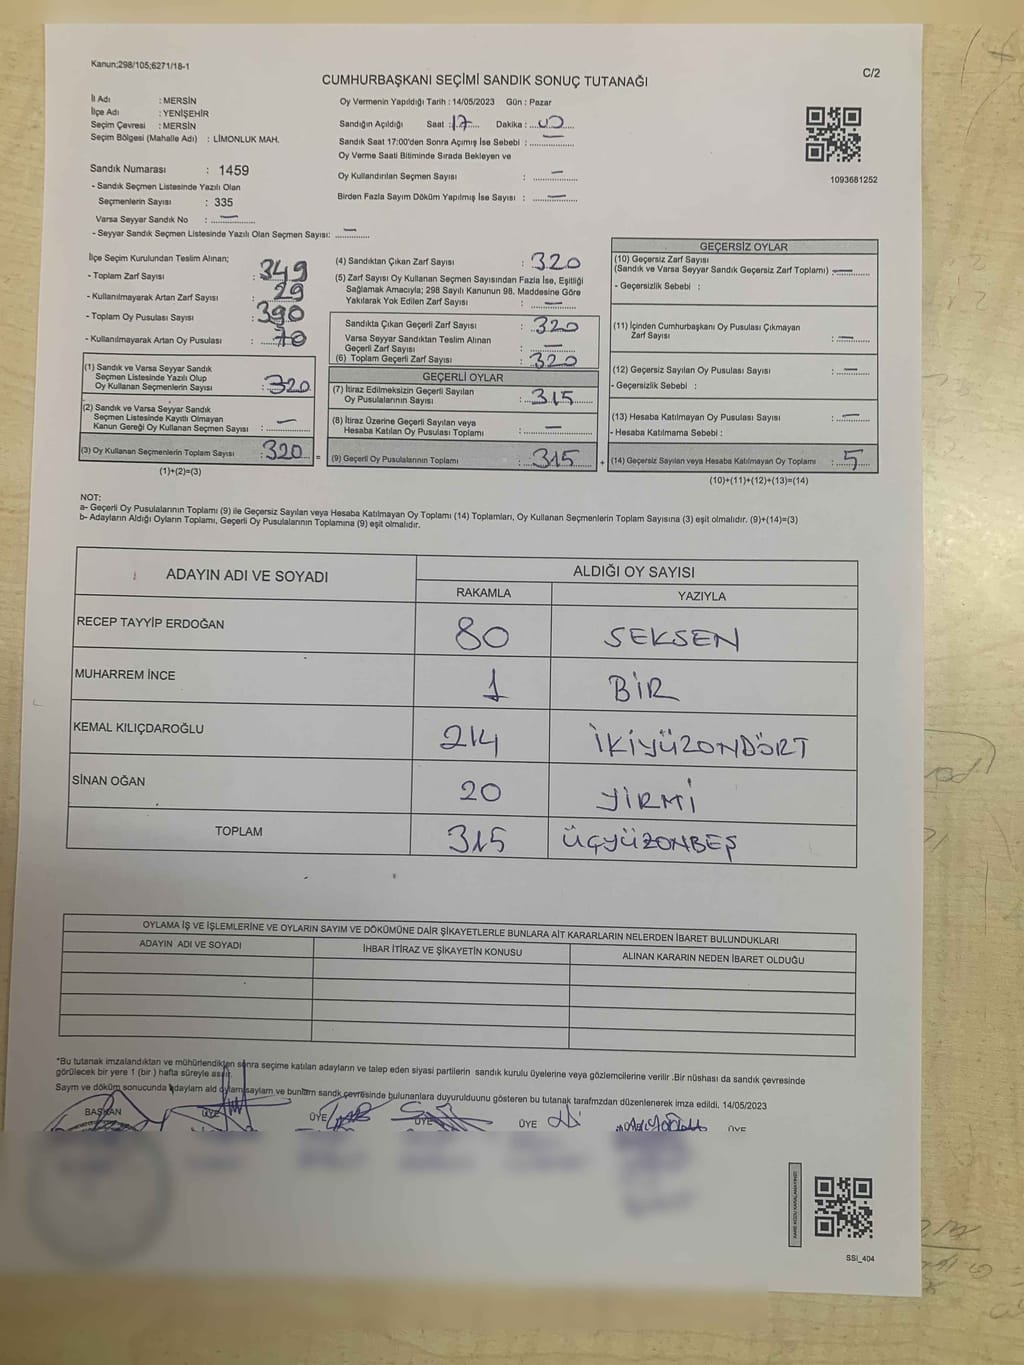 Kanun;298/105;6271/18-1
C/2
CUMHURBAŞKANI SEÇİMİ SANDIK SONUÇ TUTANAĞI
İl Adı : MERSİN
İlçe Adı : YENİŞEHİR
Seçim Çevresi : MERSİN
Seçim Bölgesi (Mahalle Adı) : LİMONLUK MAH.
Sandık Numarası : 1459
- Sandık Seçmen Listesinde Yazılı Olan
Seçmenlerin Sayısı : 335
Varsa Seyyar Sandık No : —
- Seyyar Sandık Seçmen Listesinde Yazılı Olan Seçmen Sayısı: —
Oy Vermenin Yapıldığı Tarih : 14/05/2023 Gün : Pazar
Sandığın Açıldığı Saat : 17 Dakika : 00
Sandık Saat 17:00'den Sonra Açımış İse Sebebi : —
Oy Verme Saati Bitiminde Sırada Bekleyen ve
Oy Kullandırılan Seçmen Sayısı : —
Birden Fazla Sayım Döküm Yapılmış İse Sayısı : —
1093681252
İlçe Seçim Kurulundan Teslim Alınan;
- Toplam Zarf Sayısı : 349
- Kullanılmayarak Artan Zarf Sayısı : 29
- Toplam Oy Pusulası Sayısı : 390
- Kullanılmayarak Artan Oy Pusulası : 70
(1) Sandık ve Varsa Seyyar Sandık
Seçmen Listesinde Yazılı Olup
Oy Kullanan Seçmenlerin Sayısı : 320
(2) Sandık ve Varsa Seyyar Sandık
Seçmen Listesinde Kayıtlı Olmayan
Kanun Gereği Oy Kullanan Seçmen Sayısı : —
(3) Oy Kullanan Seçmenlerin Toplam Sayısı : 320
(1)+(2)=(3)
(4) Sandıktan Çıkan Zarf Sayısı : 320
(5) Zarf Sayısı Oy Kullanan Seçmen Sayısından Fazla İse, Eşitliği
Sağlamak Amacıyla; 298 Sayılı Kanunun 98. Maddesine Göre
Yakılarak Yok Edilen Zarf Sayısı : —
Sandıkta Çıkan Geçerli Zarf Sayısı : 320
Varsa Seyyar Sandıktan Teslim Alınan
Geçerli Zarf Sayısı : —
(6) Toplam Geçerli Zarf Sayısı : 320
GEÇERLİ OYLAR
(7) İtiraz Edilmeksizin Geçerli Sayılan
Oy Pusulalarının Sayısı : 315
(8) İtiraz Üzerine Geçerli Sayılan veya
Hesaba Katılan Oy Pusulası Toplamı : —
= (9) Geçerli Oy Pusulalarının Toplamı : 315
GEÇERSİZ OYLAR
(10) Geçersiz Zarf Sayısı
(Sandık ve Varsa Seyyar Sandık Geçersiz Zarf Toplamı) : —
- Geçersizlik Sebebi :
(11) İçinden Cumhurbaşkanı Oy Pusulası Çıkmayan
Zarf Sayısı : —
(12) Geçersiz Sayılan Oy Pusulası Sayısı : —
- Geçersizlik Sebebi :
(13) Hesaba Katılmayan Oy Pusulası Sayısı : —
- Hesaba Katılmama Sebebi :
+ (14) Geçersiz Sayılan veya Hesaba Katılmayan Oy Toplamı : 5
(10)+(11)+(12)+(13)=(14)
NOT:
a- Geçerli Oy Pusulalarının Toplamı (9) ile Geçersiz Sayılan veya Hesaba Katılmayan Oy Toplamı (14) Toplamları, Oy Kullanan Seçmenlerin Toplam Sayısına (3) eşit olmalıdır. (9)+(14)=(3)
b- Adayların Aldığı Oyların Toplamı, Geçerli Oy Pusulalarının Toplamına (9) eşit olmalıdır.
ADAYIN ADI VE SOYADI ALDIĞI OY SAYISI
RAKAMLA YAZIYLA
RECEP TAYYİP ERDOĞAN 80 SEKSEN
MUHARREM İNCE 1 BİR
KEMAL KILIÇDAROĞLU 214 İKİYÜZONDÖRT
SİNAN OĞAN 20 YİRMİ
TOPLAM 315 ÜÇYÜZONBEŞ
OYLAMA İŞ VE İŞLEMLERİNE VE OYLARIN SAYIM VE DÖKÜMÜNE DAİR ŞİKAYETLERLE BUNLARA AİT KARARLARIN NELERDEN İBARET BULUNDUKLARI
ADAYIN ADI VE SOYADI İHBAR İTİRAZ VE ŞİKAYETİN KONUSU ALINAN KARARIN NEDEN İBARET OLDUĞU
*Bu tutanak imzalandıktan ve mühürlendikten sonra seçime katılan adayların ve talep eden siyasi partilerin sandık kurulu üyelerine veya gözlemcilerine verilir .Bir nüshası da sandık çevresinde
görülecek bir yere 1 (bir ) hafta süreyle asılır.
Sayım ve döküm sonucunda adayların ald oyların sayları ve bunların sandk çevresinde bulunanlara duyurulduunu gösteren bu tutanak tarafmzdan düzenlenerek imza edildi. 14/05/2023
BAŞKAN ÜYE ÜYE ÜYE ÜYE ÜYE
KARE KODU KARALAMAYINIZ!
SSI_404